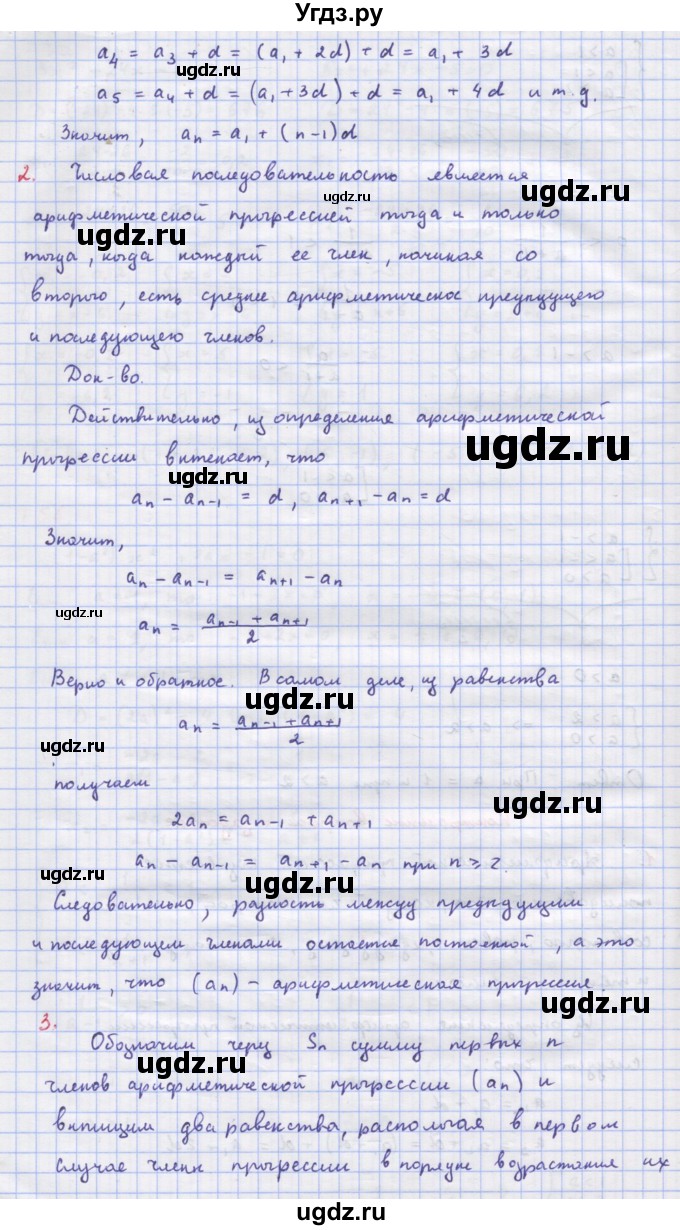 Угдз.ру
a₄ = a₃ + d = (a₁ + 2d) + d = a₁ + 3d
ugdz.ru
a₅ = a₄ + d = (a₁ + 3d) + d = a₁ + 4d и т.д.
ugdz.ru
Значит, aₙ = a₁ + (n-1)d
2. Числовая последовательность является
ugdz.ru ugdz.ru
арифметической прогрессией тогда и только
ugdz.ru
тогда, когда каждый ее член, начиная со
второго, есть среднее арифметическое предыдущего
и последующего членов.
Док-во.
Действительно, из определения арифметической
ugdz.ru
прогрессии вытекает, что
ugdz.ru
aₙ - aₙ₋₁ = d, aₙ₊₁ - aₙ = d
Значит,
aₙ - aₙ₋₁ = aₙ₊₁ - aₙ
ugdz.ru
aₙ = (aₙ₋₁ + aₙ₊₁)/2
ugdz.ru
Верно и обратное. В самом деле, из равенства
ugdz.ru
aₙ = (aₙ₋₁ + aₙ₊₁)/2
ugdz.ru
получаем
ugdz.ru
2aₙ = aₙ₋₁ + aₙ₊₁
aₙ - aₙ₋₁ = aₙ₊₁ - aₙ при n ⩾ 2.
ugdz.ru ugdz.ru
Следовательно, разность между предыдущим
и последующем членами остается постоянной, а это
значит, что (aₙ) - арифметическая прогрессия.
ugdz.ru
3.
Обозначим через Sₙ сумму первых n
ugdz.ru
членов арифметической прогрессии (aₙ) и
выпишим два равенства, располагая в первом
случае члены прогрессии в порядке возрастания их
ugdz.ru